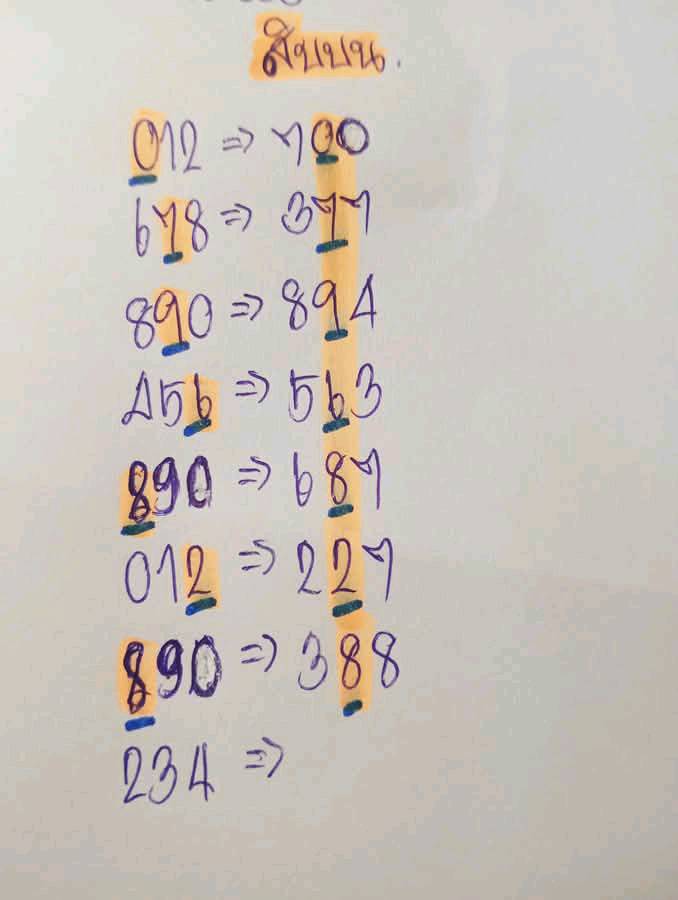 สิบบน.
012 => 700
678 => 377
890 => 894
456 => 563
890 => 687
012 => 227
890 => 388
234 =>